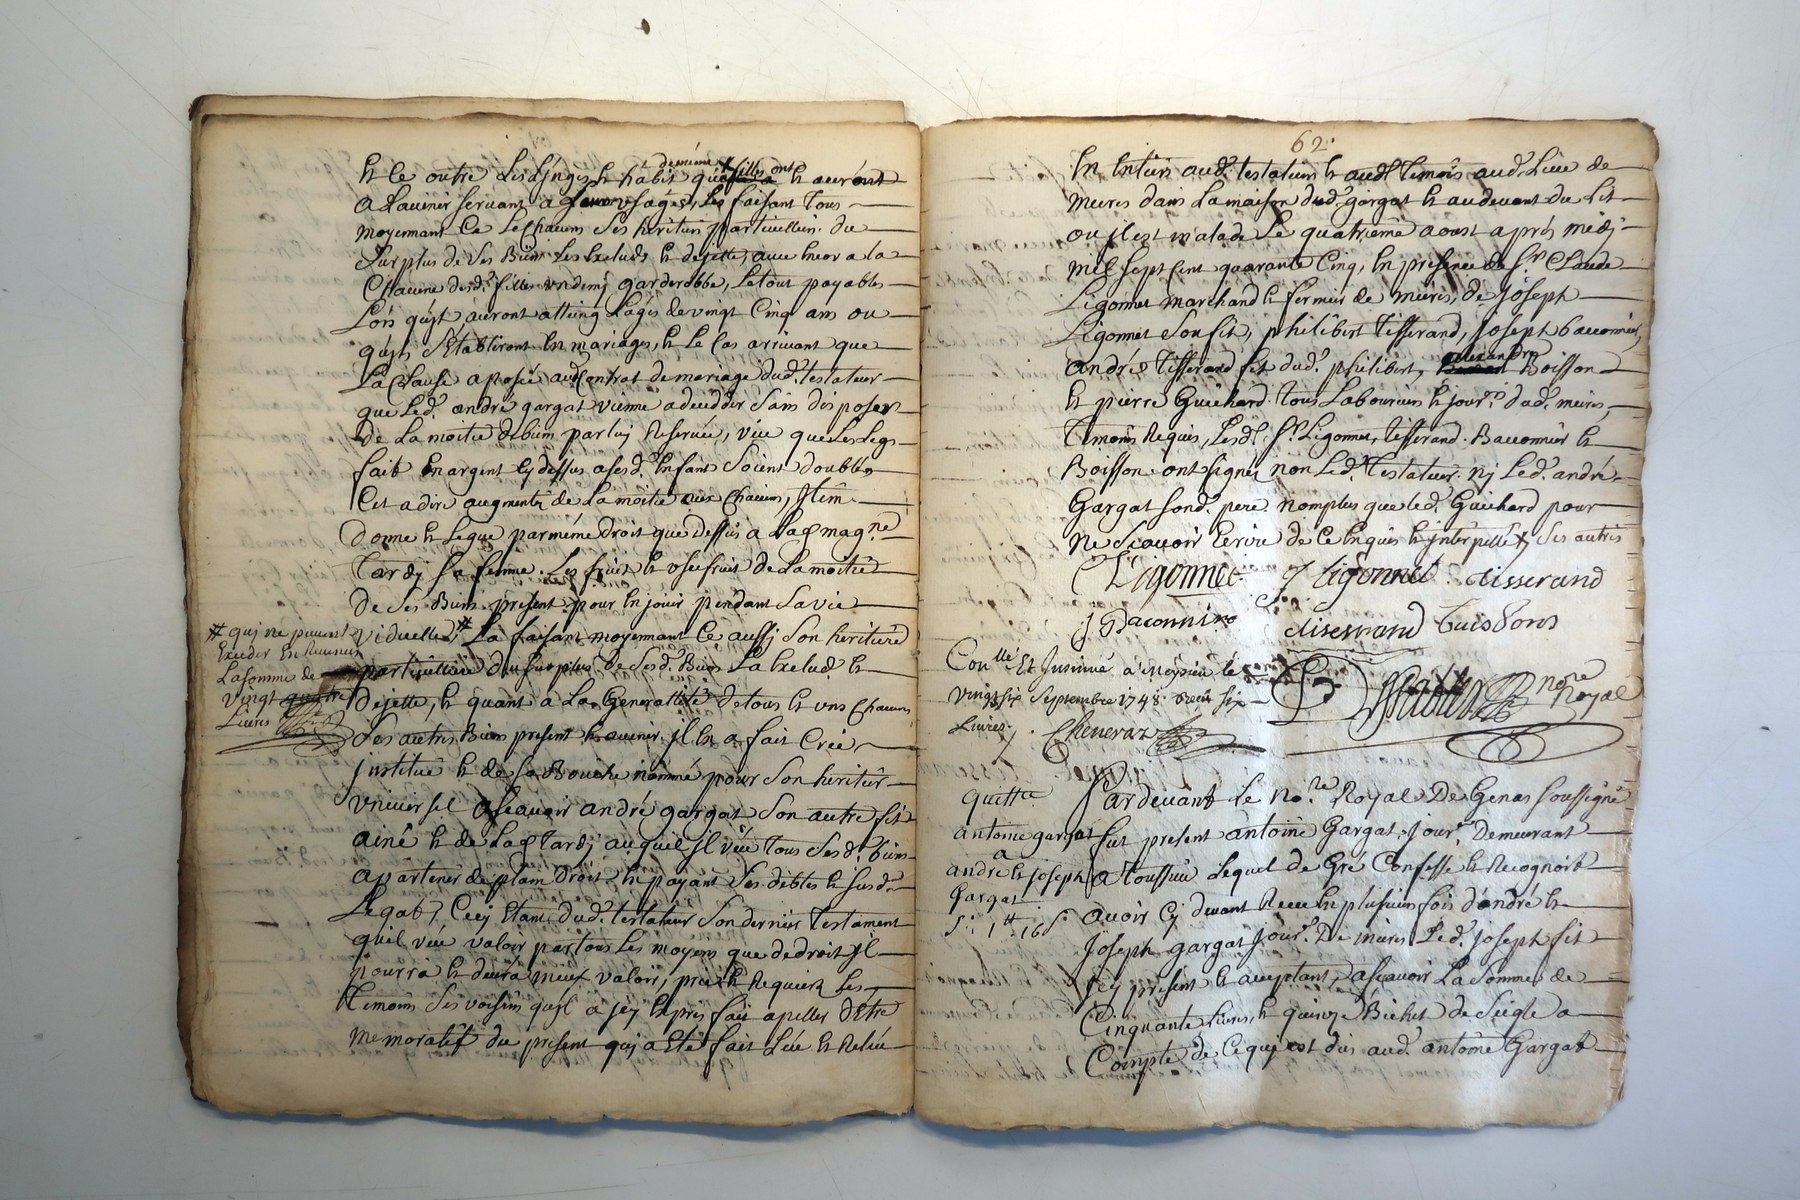 h le outre Les Linges h habit que desd. filles ont h auront
a Lavenir servant a leur usages, Les faisant Tous
moyennant Ce Le Chacuns Ses heritiers particuliers du
Surplus de Ses Biens Les Exclud h dejette, avec Encor a la
Chacune desd. filles un demy garderobbe, Letout payables
Lors quyls auront attiing Lages de vingt Cinq ans ou
quyls Setabliront En mariages, h Le Cas arrivant que
La Clause aposée aud Contrat de mariage dud. testateur
que Led. andré gargat vienne adecedder sans disposer
de La moitie d biens par luy Reservée, vûe que Les Legs
fait En argent Cy dessus a sesd. Enfant Soient doubles
Cest adire augmenté de La moitie aux Chacuns, Jtem
donne h Legue par même droit que dessus a Lad mag.ne
Tardj Sa femme. Les fruit h usufruit de La moitié
de Ses Biens present pour En jouir pendant Sa vie
viduelle, # La faisant moyennant Ce aussj Son heritiere
# quj ne peuvent
Exceder En Revenus
La somme de
vingt quatre
Livres
particulliere du Surplus de Sesd. Biens La Exclud h
dejette, h quant a La Generallité de tous h uns Chacuns
Ses autres Biens present h avenir. jl En a fait Créé
jnstitué h de sa Bouche nommé pour Son heritier
universel ascavoir andré gargat Son autre fils
ainé h de Lad Tardj auquel jl vûe tous Sesd. biens
apartenir de plain droit En payant Ses debtes h Susd.
Legats, Cecy Etant dud. testateur Son dernier testament
quil vûe valoir par tous Les moyens que de droit jl
pourra h devra meux valoir, prie h Requiert Les
Temoins Ses voisins quyl a jcy Exprès fait apeller d'Etre
memoratif du present quj a Eté fait Leû h Releû
62.
En Entier aud. testateur h aud. Temoins aud. Lieu de
meures dans La maison dud. gargat h audevant du Lit
ou jl est malade Le quatrième aoust aprés midj
mil sept Cent quarante Cinq, En presence de Sr. Claude
Ligonnet marchand h fermier de meures, de Joseph
Ligonnet Son fils, philibert Tisserand, Joseph baconnier,
andré Tisserand fils dud. philibert, alexandre Boisson
h pierre Guichard. Tous Laboureurs h jour.rs dud. meures,
Temoins Requis, Lesd. Sr. Ligonnet, Tisserand. Baconnier h
Boisson. ont signéz non Led. Testateur. nj Led. andré
Gargat Sond. pere nomplus que Led. Guichard pour
ne Scavoir Ecrire de Ce Enquis h jnterpellés, Ses autres
C Ligonnet J Ligonnet tisserand
j Baconnier tisserand
Con.llé Et Jnsinué à meyzieu le
vingt six Septembre 1745 Recu six
Livres. Cheneraz
no.re Royal
Quitta
antoine gargat
a
andré h joseph
Gargat
S. 1 tt 16 s
Pardevant Le No.re Royal De Genas soussigné
fut present antoine Gargat, jour.r Demeurant
a toussieu Lequel de Gré Confesse h Recognoit
avoir Cy devant Receu En plusieurs fois d'andré h
Joseph gargat Jour.r De meures Led. Joseph fils
jcy present h aceptant, ascavoir La Somme de
Cinquante Livres, h quinze Bichet de Seigle a
Compte de Ce quj est dus aud. antoine Gargat